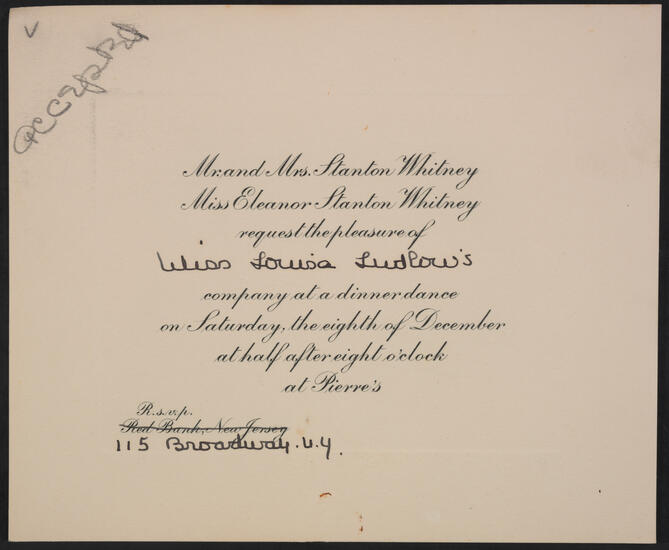 V
accepted
Mr. and Mrs. Stanton Whitney
Miss Eleanor Stanton Whitney
request the pleasure of
Miss Louisa Ludlow's
company at a dinner dance
on Saturday, the eighth of December
at half after eight o'clock
at Pierre's
R.s.v.p.
Red Bank, New Jersey
115 Broadway. N.Y.